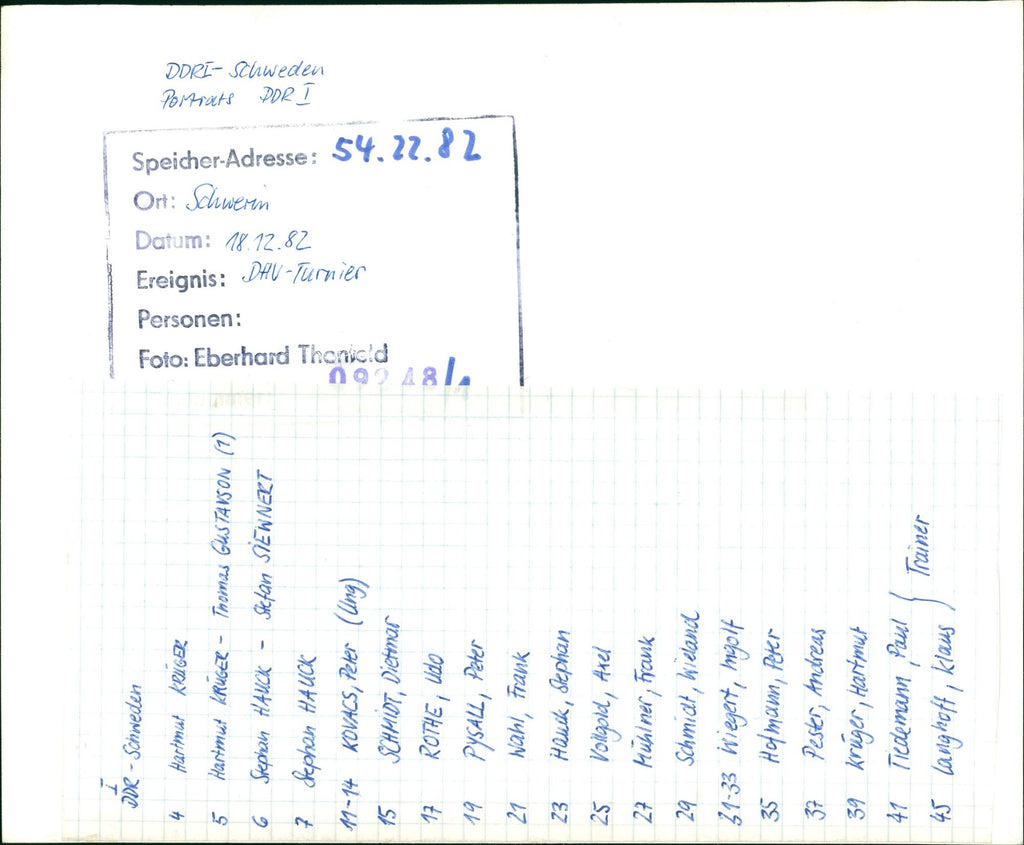 DDRI-Schweden
Portraits DDR I
Speicher-Adresse: 54.22.82
Ort: Schwerin
Datum: 18.12.82
Ereignis: DHV-Turnier
Personen:
Foto: Eberhard Thonfeld
09248/1
I
DDR - Schweden
4 Hartmut KRÜGER
5 Hartmut KRÜGER - Thomas GUSTAVSON (1)
6 Stephan HAUCK - Stefan SIEWNERT
7 Stephan HAUCK
11-14 KOVACS, Peter (Ung)
15 SCHMIDT, Dietmar
17 ROTHE, Udo
19 PYSALL, Peter
21 Wahl, Frank
23 Hauck, Stephan
25 Voligold, Axel
27 Mühlner, Frank
29 Schmidt, Wieland
31-33 Wiegert, Ingolf
35 Hofmann, Peter
37 Pester, Andreas
39 Krüger, Hartmut
41 Tiedemann, Paul } Trainer
45 Langhoff, Klaus